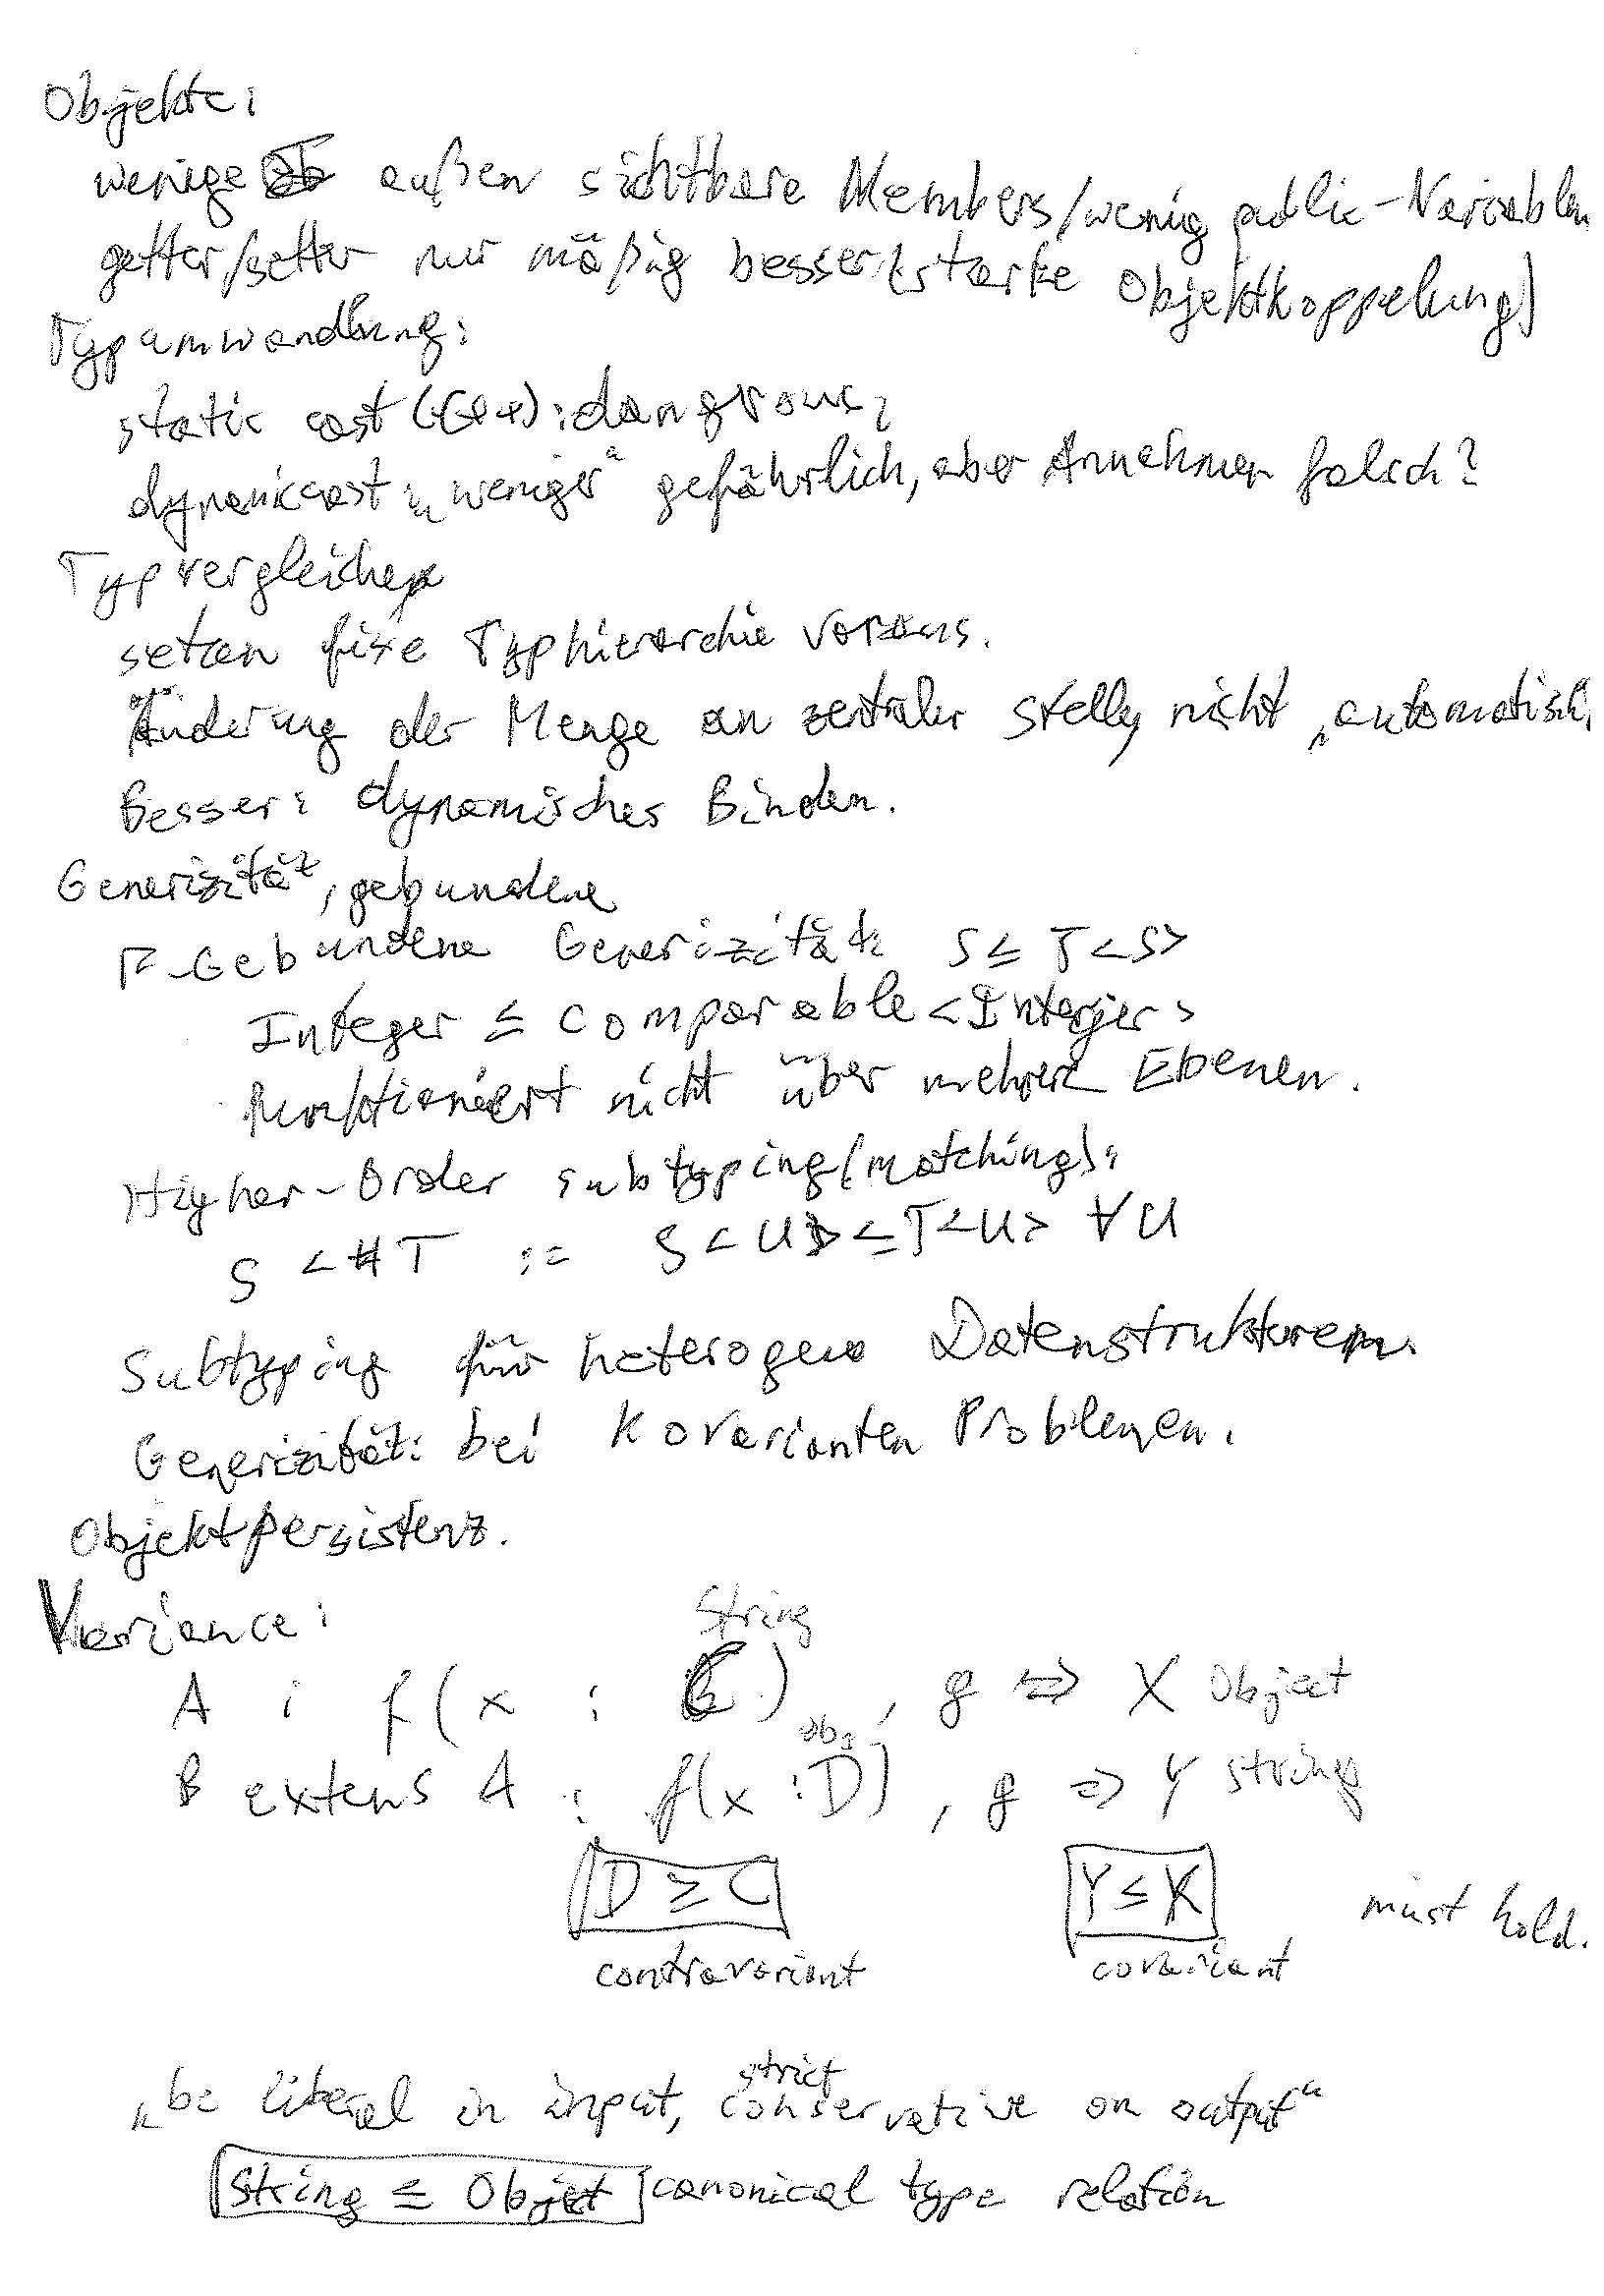 Objekte:
wenige außen sichtbare Members/wenig public-Variablen
getter/setter nur mäßig besser (starke Objektkoppelung)
Typumwandlung:
static cast (C++): dangrous;
dynamiccast: „weniger“ gefährlich, aber Annahmen falsch?
Typvergleiche
setzen fixe Typhierarchie voraus.
Änderung der Menge an zentraler Stelle, nicht „automatisch
Besser: dynamisches Binden.
Generizität, gebundene
F-Gebundene Generizität: S ≤ T<S>
Integer ≤ Comparable<Integer>
funktioniert nicht über mehrere Ebenen.
Higher-Order subtyping (matching):
S <# T := S<U> ≤ T<U> ∀U
Subtyping für heterogene Datenstrukturen.
Generizität: bei kovarianten Problemen.
Objektpersistenz.
Variance:
String
A : f(x : C) , g => X Object
Obj
B extens A : f(x : D) , g => Y string
D ≥ C Y ≤ X must hold.
contravariant covariant
strict
„be liberal in input, conservative on output“
String ≤ Objet canonical type relation